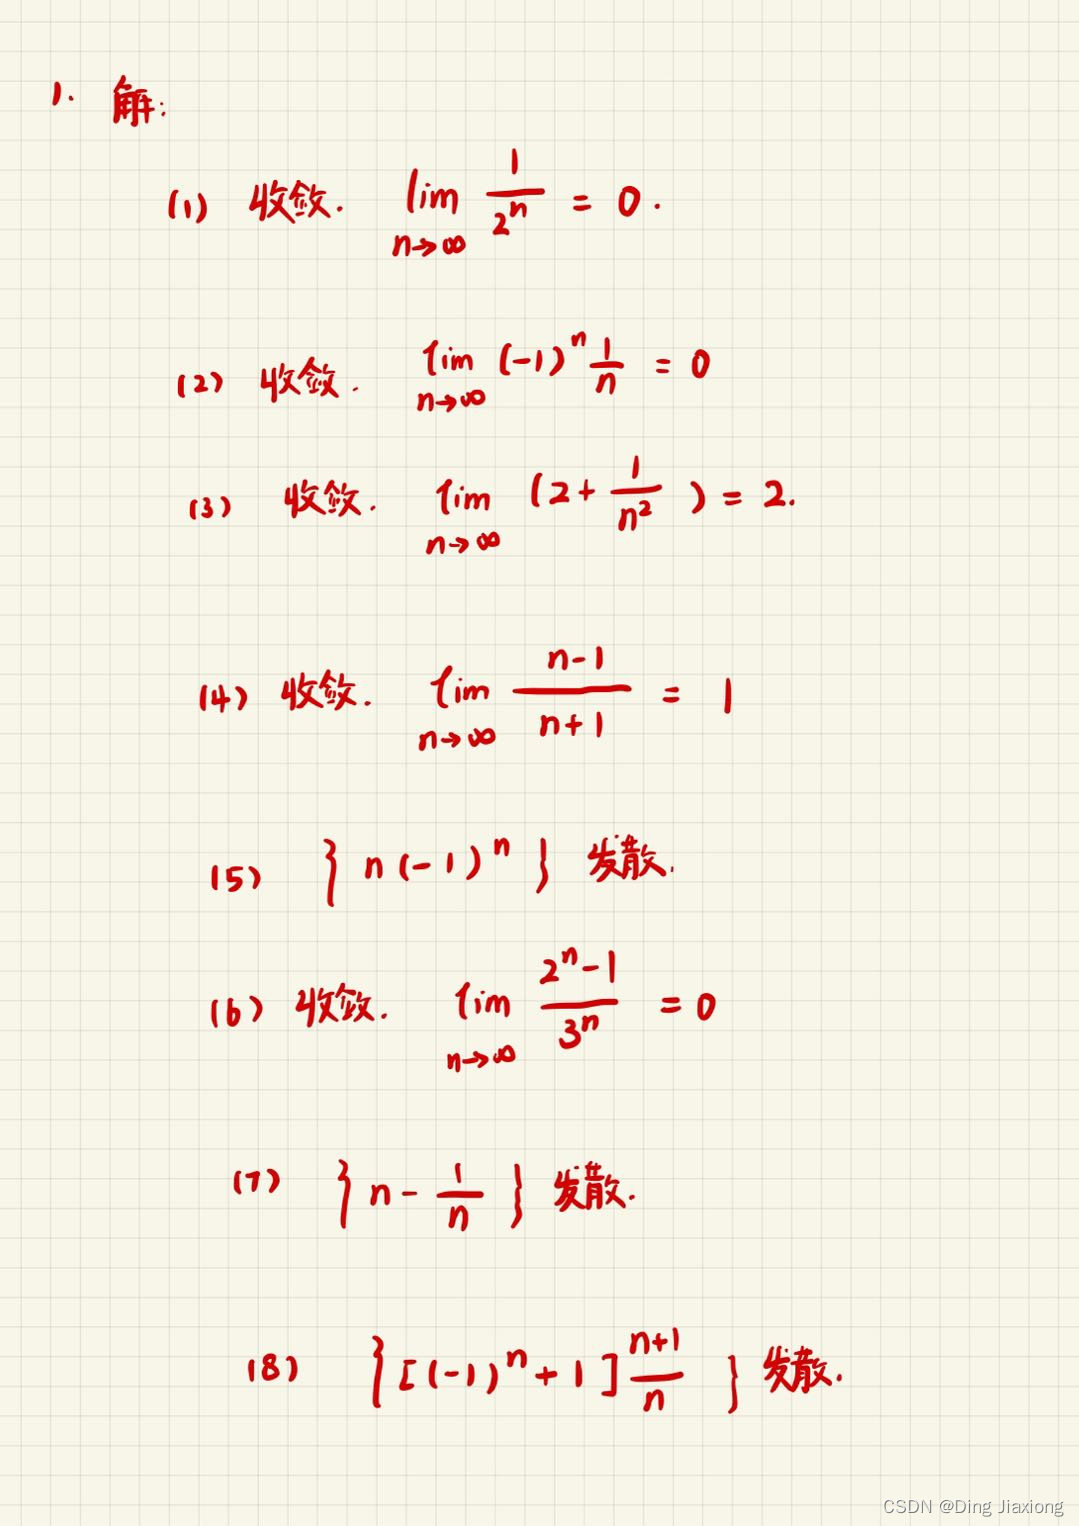 1. 解:
(1) 收敛. lim_{n→∞} \frac{1}{2^n} = 0.
(2) 收敛. lim_{n→∞} (-1)^n \frac{1}{n} = 0
(3) 收敛. lim_{n→∞} (2+\frac{1}{n^2}) = 2.
(4) 收敛. lim_{n→∞} \frac{n-1}{n+1} = 1
(5) {n(-1)^n} 发散.
(6) 收敛. lim_{n→∞} \frac{2^n-1}{3^n} = 0
(7) {n-\frac{1}{n}} 发散.
(8) {[(-1)^n+1]\frac{n+1}{n}} 发散.
CSDN @Ding Jiaxiong